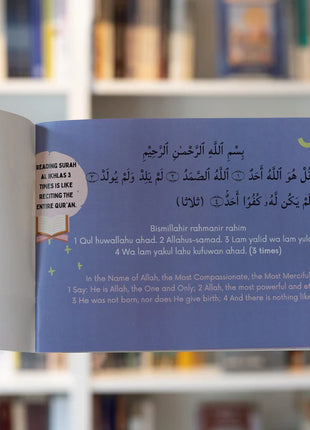 READING SURAH
AL IKHLAS 3
TIMES IS LIKE
RECITING THE
ENTIRE QUR'AN.
بِسْمِ اللَّهِ الرَّحْمَٰنِ الرَّحِيْمِ
قُلْ هُوَ اللَّهُ أَحَدٌ ۝١ اللَّهُ الصَّمَدُ ۝٢ لَمْ يَلِدْ وَلَمْ يُولَدْ ۝٣
لَمْ يَكُن لَّهُۥ كُفُوًا أَحَدٌ ۝٤ (ثلاثا)
Bismillahir rahmanir rahim
1 Qul huwallahu ahad. 2 Allahus-samad. 3 Lam yalid wa lam
4 Wa lam yakul lahu kufuwan ahad. (3 times)
In the Name of Allah, the Most Compassionate, the Most Merciful
1 Say: He is Allah, the One and Only; 2 Allah, the most powerful and
3 He was not born, nor does He give birth; 4 And there is nothing like